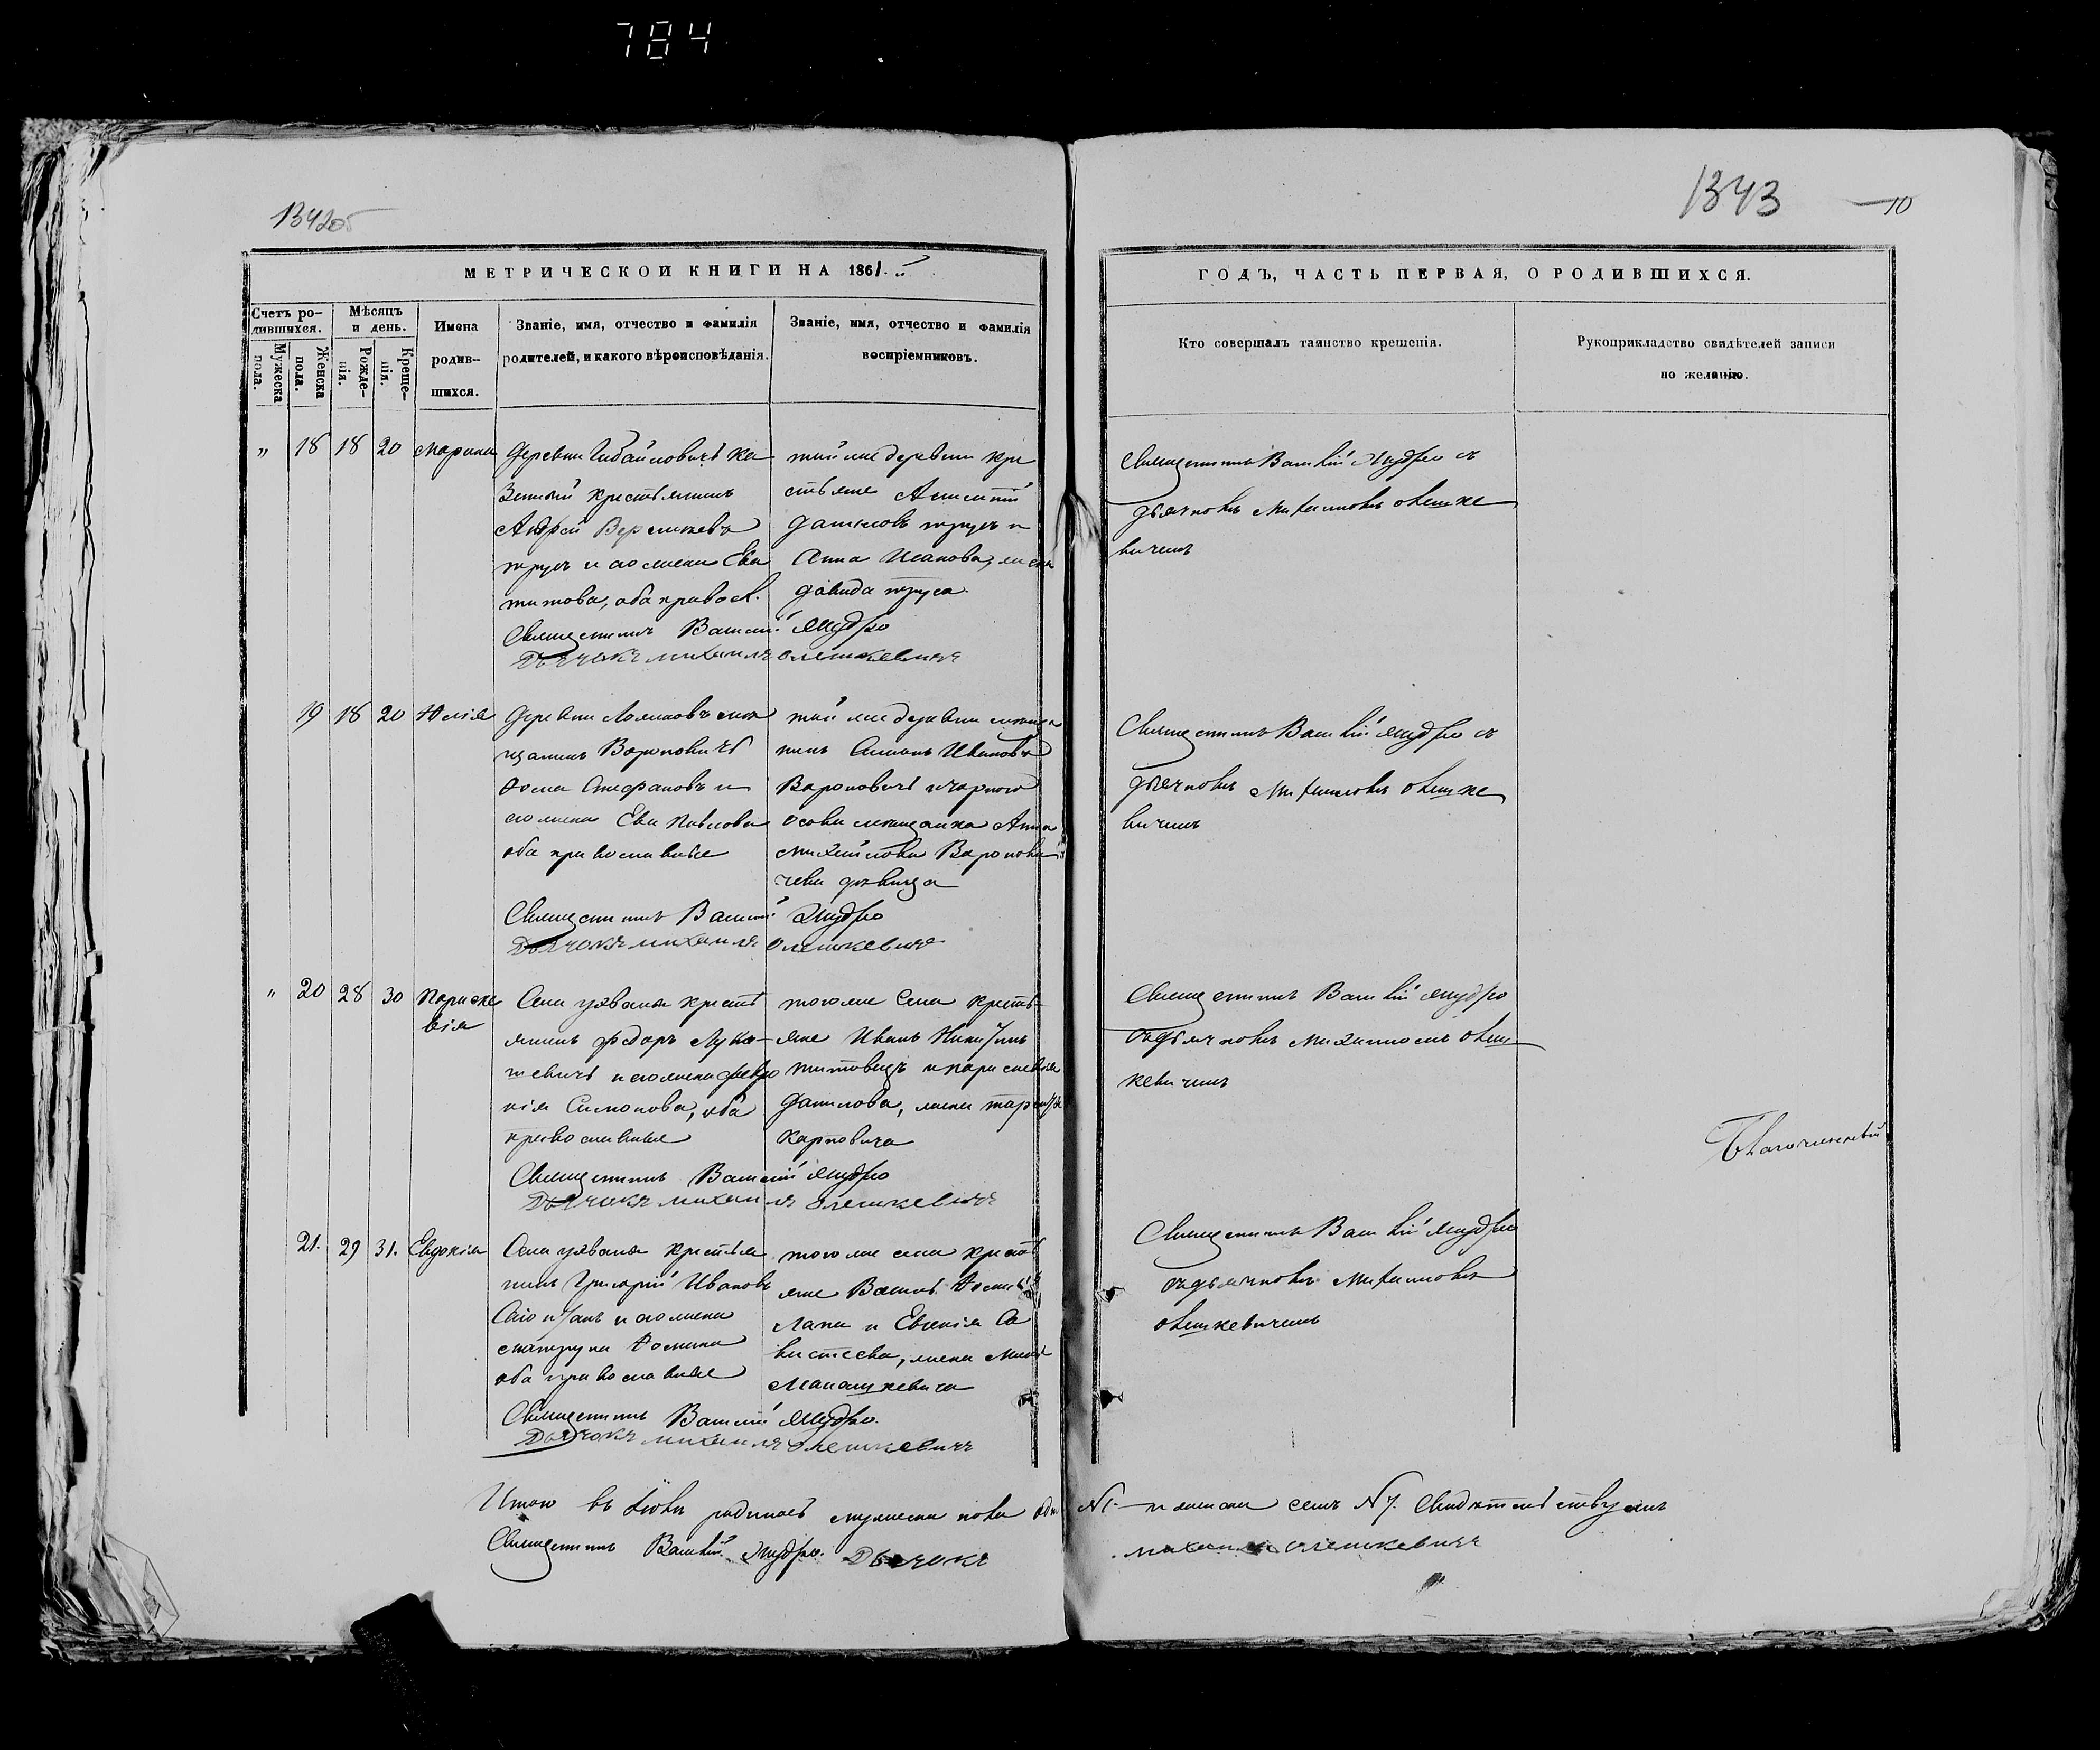 784
1342об
1343
10
МЕТРИЧЕСКОЙ КНИГИ НА 1861.
ГОДЪ, ЧАСТЬ ПЕРВАЯ, О РОДИВШИХСЯ.
Счетъ ро-
дившихся.
Мужеска пола.
Женска пола.
Мѣсяцъ
и день.
Рожде-
нія.
Креще-
нія.
Имена
родив-
шихся.
Званіе, имя, отчество и фамилія
родителей, и какого вѣроисповѣданія.
Званіе, имя, отчество и фамилія
воспріемниковъ.
Кто совершалъ таинство крещенія.
Рукоприкладство свидѣтелей записи
по желанію.
" 18 18 20 Марина
Деревни ка
зенный крестьянинъ
Андрей
и его жена Ева
Титова, оба правосл.
Священникъ Василій Мудро
Дьячокъ Михаилъ Олешкевичъ
той же деревни кре
стьяне
Даниловъ и
Анна Иванова, жена
Давида Труса
Священникъ Василій Мудро съ
дьячкомъ Михаиломъ Олешке
вичемъ
19 18 20 Юлія
Деревни мѣ
щанинъ Вороновичъ
Фома Стефановъ и
его жена Ева Павлова
оба православные
Священникъ Василій Мудро
Дьячокъ Михаилъ Олешкевичъ
той же деревни мѣща
нинъ Ивановъ
Вороновичъ и
мѣщанка Анна
Михайлова Воронови
чева дѣвица
Священникъ Василій Мудро съ
дьячкомъ Михаиломъ Олешке
вичемъ
" 20 28 30 Параске
вія
Села кресть
янинъ Ѳедоръ Лука-
шевичъ и его жена Февро
нія Симонова, оба
православные
Священникъ Василій Мудро
Дьячокъ Михаилъ Олешкевичъ
того же села кресть-
яне Иванъ Никитинъ
Титовецъ и Параскевія
Данилова, жена
Карповича
Священникъ Василій Мудро
съ дьячкомъ Михаиломъ Олеш
кевичемъ
Благочинный
21. 29 31. Евдокія
Села крестья
нинъ Григорій Ивановъ
и его жена
Фомина
оба православные
Священникъ Василій Мудро.
Дьячокъ Михаилъ Олешкевичъ
того же села кресть
яне
Лапа и Евгенія Са
жена
Манашкевича
Священникъ Василій Мудро
съ дьячкомъ Михаиломъ
Олешкевичемъ
Итого въ родилось мужеска пола одн N1. и женска семь N7. Свидѣтельствуемъ
Священникъ Василій Мудро. Дьячокъ Михаилъ Олешкевичъ